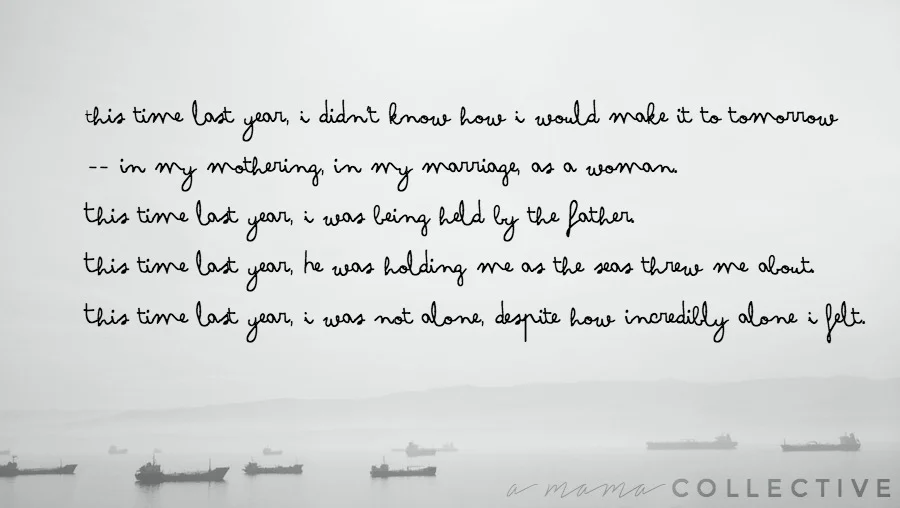 this time last year, i didn't know how i would make it to tomorrow
-- in my mothering, in my marriage, as a woman.
this time last year, i was being held by the father.
this time last year, he was holding me as the seas threw me about.
this time last year, i was not alone, despite how incredibly alone i felt.
a mama COLLECTIVE